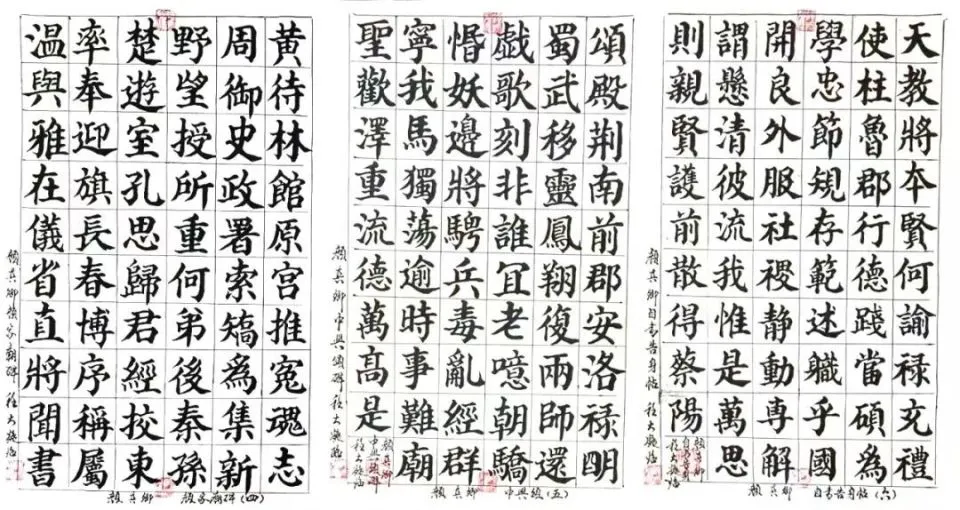 黃待林館原宮推冤魂志
周御史政署索矯為集新
野望授所重何弟後秦孫
楚遊室孔思歸君經挍東
率奉迎旗長春博序稱屬
溫與雅在儀省直將聞書
顏真卿顏家廟碑 程大臨
顏真卿 顏家廟碑(四)
頌殿荆南前郡安洛禄明
蜀武移靈鳳翔復兩師還
戲歌刻非誰宜老噫朝驕
惛妖邊將騁兵毒亂經群
寧我馬獨蕩逾時事難廟
聖歡澤重流德萬高是
顏真卿中興頌碑 程大臨
顏真卿 中興頌(五)
天教將本賢何諭禄充禮
使柱魯郡行德踐當碩為
學忠節規存範述職乎國
開良外服社稷静動専解
謂懸清彼流我惟是萬思
則親賢護前散得蔡陽
顏真卿自書告身帖 程大臨
顏真卿 自書告身帖(六)